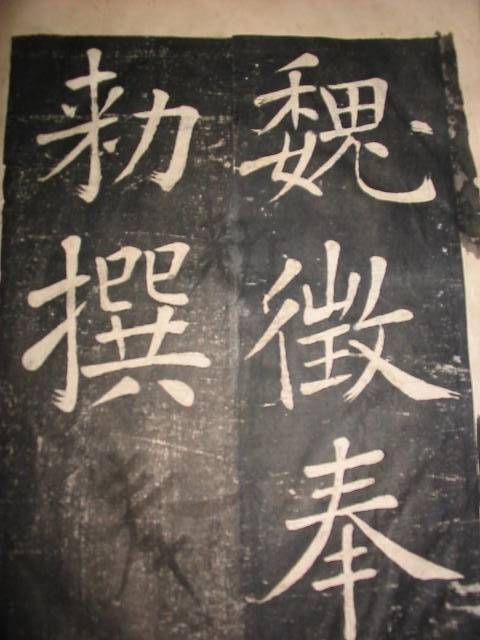 魏徵奉
勑撰